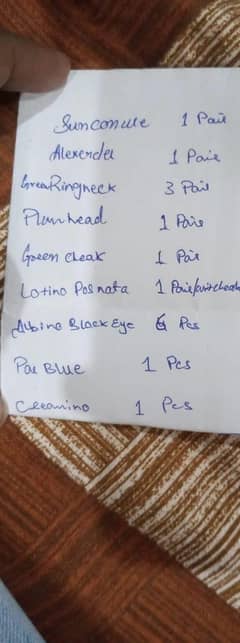 Sunconure 1 Pair
Alexender 1 Pair
Green Ringneck 3 Pair
Plumhead 1 Pair
Green cheak 1 Pair
Lotino Pos nata 1 Pair
Albino Black Eye Pcs
Par Blue 1 Pcs
Creamino 1 Pcs